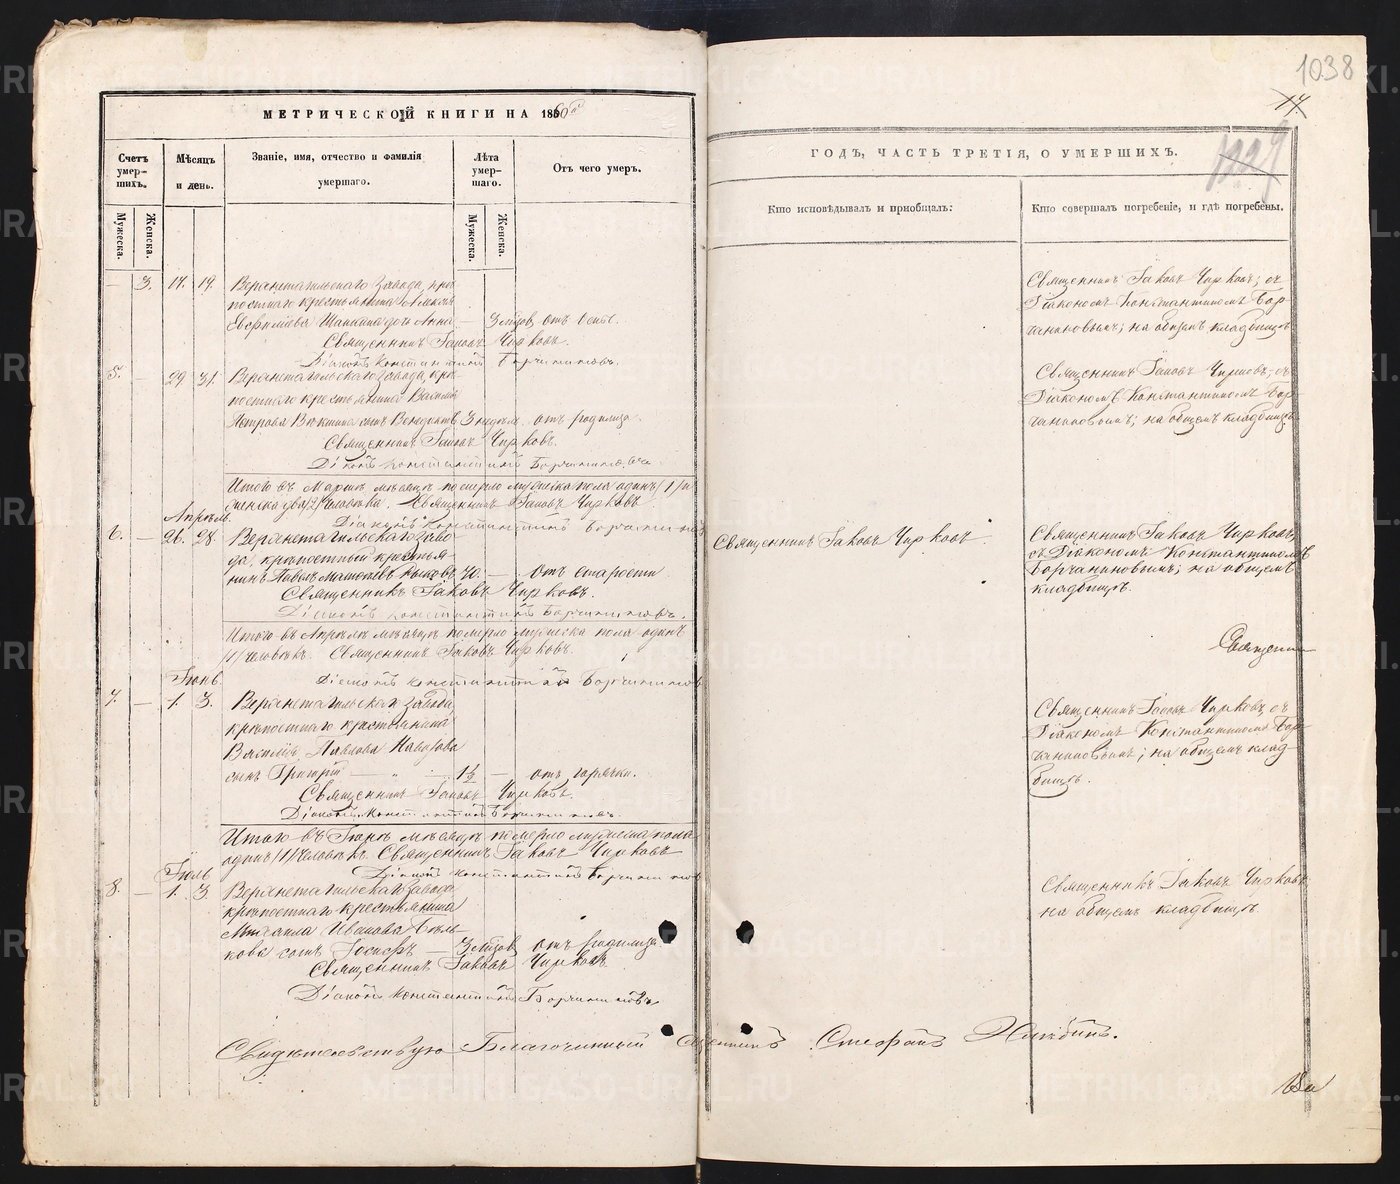 1038
14.
1029
МЕТРИЧЕСКОЙ КНИГИ НА 1860й
ГОДЪ, ЧАСТЬ ТРЕТІЯ, О УМЕРШИХЪ.
Счетъ умер-шихъ.
Мѣсяцъ и день.
Званіе, имя, отчество и фамилія умершаго.
Лѣта умер-шаго.
Отъ чего умеръ.
Кто исповѣдывалъ и пріобщалъ:
Кто совершалъ погребеніе, и гдѣ погребены.
Мужеска.
Женска.
Мужеска.
Женска.
— 3. 17. 19. Верхнетагильскаго Завода, крѣ-
постнаго крестьянина
Шапкина дочь Анна — 3 мѣсяцов отъ оспы.
Священникъ Іаковъ Чирковъ.
Діаконъ Константинъ Борчаниновъ.
Священникъ Іаковъ Чирковъ; съ
Діакономъ Константиномъ Бор-
чаниновымъ; на общемъ кладбищѣ
5. — 29 31. Верхнетагильскаго Завода, крѣ-
постнаго крестьянина Василія
Петрова сынъ 3 недѣл. отъ родимца.
Священникъ Іаковъ Чирковъ.
Діаконъ Константинъ Борчаниновъ.
Священникъ Іаковъ Чирковъ; съ
Діакономъ Константиномъ Бор-
чаниновымъ; на общемъ кладбищѣ
Итого въ Мартѣ мѣсяцѣ померло мужеска пола одинъ /1/ и
женска два /2/ человѣка. Священникъ Іаковъ Чирковъ
Діаконъ Константинъ Борчаниновъ
Апрѣль.
6. — 26. 28. Верхнетагильскаго Заво-
да, крѣпостный крестья-
нинъ Павелъ 70. — отъ старости
Священникъ Іаковъ Чирковъ.
Діаконъ Константинъ Борчаниновъ.
Священникъ Іаковъ Чирковъ.
Священникъ Іаковъ Чирковъ,
съ Діакономъ Константиномъ
Борчаниновымъ; на общемъ
кладбищѣ.
Итого въ Апрѣлѣ мѣсяцѣ померло мужеска пола одинъ
/1/ человѣкъ. Священникъ Іаковъ Чирковъ.
Діаконъ Константинъ Борчаниновъ
Священни
Іюнь
7. — 1. 3. Верхнетагильскаго Завода,
крѣпостнаго крестьянина
Василія Павлова
сынъ Григорій — 1½ — отъ горячки.
Священникъ Іаковъ Чирковъ.
Діаконъ Константинъ Борчаниновъ.
Священникъ Іаковъ Чирковъ, съ
Діакономъ Константиномъ Бор-
чаниновымъ; на общемъ клад-
бищѣ.
Итого въ Іюнѣ мѣсяцѣ померло мужеска пола
одинъ /1/ человѣкъ Священникъ Іаковъ Чирковъ
Діаконъ Константинъ Борчаниновъ
Іюль
8. — 1. 3. Верхнетагильскаго Завода,
крѣпостнаго крестьянина
Михаила Иванова Бѣль-
кова сынъ Іосифъ — 3 мѣсяцов отъ родимца.
Священникъ Іаковъ Чирковъ
Діаконъ Константинъ Борчаниновъ
Священникъ Іаковъ Чирковъ
на общемъ кладбищѣ.
Свидѣтельствую Благочинный Священникъ Стефанъ
METRIKI.GASO-URAL.RU